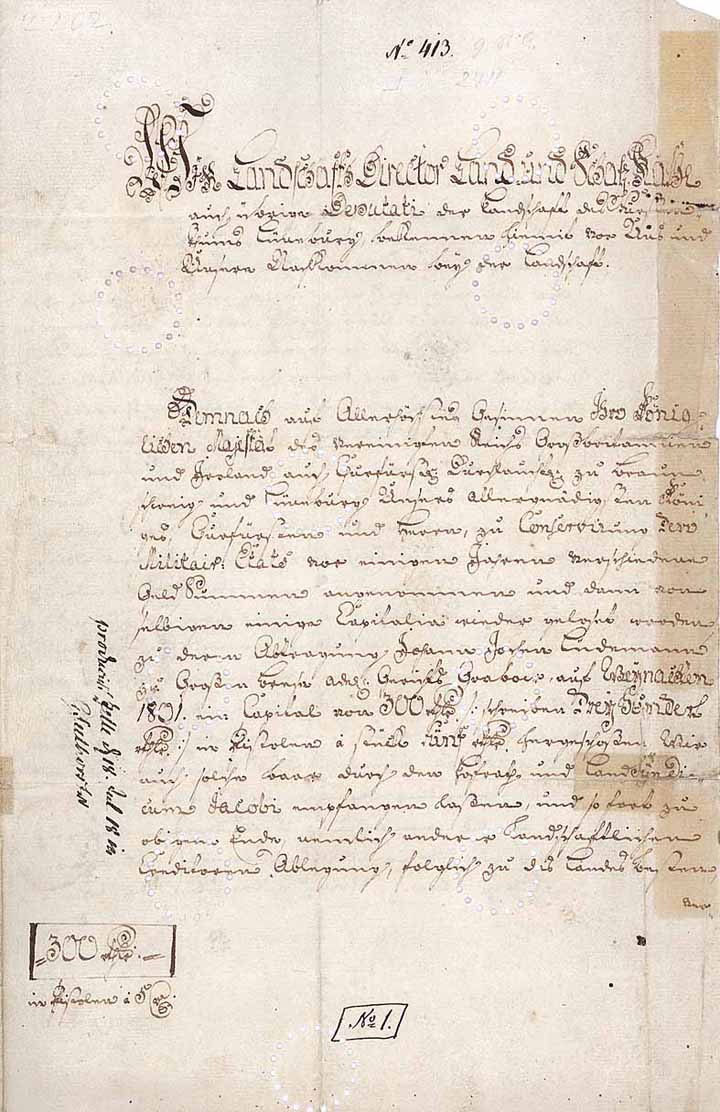 No 413.
Wir Landschafts Director Land und Schatz Räthe
auch übrige Deputati der Landschaft des Fürsten-
thums Lüneburg, bekennen hiemit vor Uns und
Unsere Nachkommen bey der Landschaft.
Demnach auf Allerhöchstes Gesinnen Ihro König-
lichen Majestät des vereinigten Reichs Großbritannien
und Irland, auch Churfürstl. Durchlaucht zu Braun-
schweig und Lüneburg Unsers allergnädigsten Köni-
ges, Churfürsten und Herrn, zu Conservirung Dero
Militair-Etats vor einigen Jahren verschiedene
Geld Summen angenommen und dann von
selbigen einige Capitalia wieder geloset worden
zu deren Abtragung Johann Lindemann
zu Großen adel. Gerichts auf Weynachten
1801. ein Capital von 300 rthlr /: schreiben Drey Hundert
rthlr :/ in Pistolen à Stück fünf rthlr hergeschoßen, Wir
auch solche baar durch den Hofrath und Landsyndi-
cum Jacobi empfangen laßen, und so fort zu
obigem Ende, nemlich anderer Landschaftlichen
Creditoren Ablegung, folglich zu des Landes Besten
ver-
product. Zelle d 18 Jul 18
=300 rthlr.=
in Pistolen à 5 rthlr.
No 1.